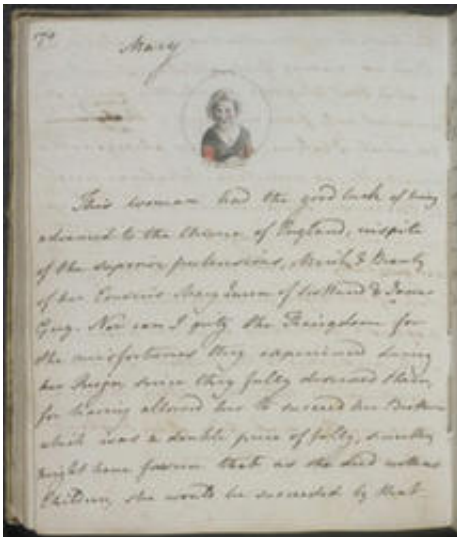 Mary
This woman had the good luck of being
advanced to the throne of England, inspite
of the superior pretensions, Merit & Beauty
of her Cousins Mary Queen of Scotland & Jane
Grey. Nor can I pity the Kingdom for
the misfortunes they experienced during
her Reign, since they fully deserved them,
for having allowed her to succeed her Brother
which was a double peice of folly, since they
might have forseen that as she died without
Children, she would be succeeded by that